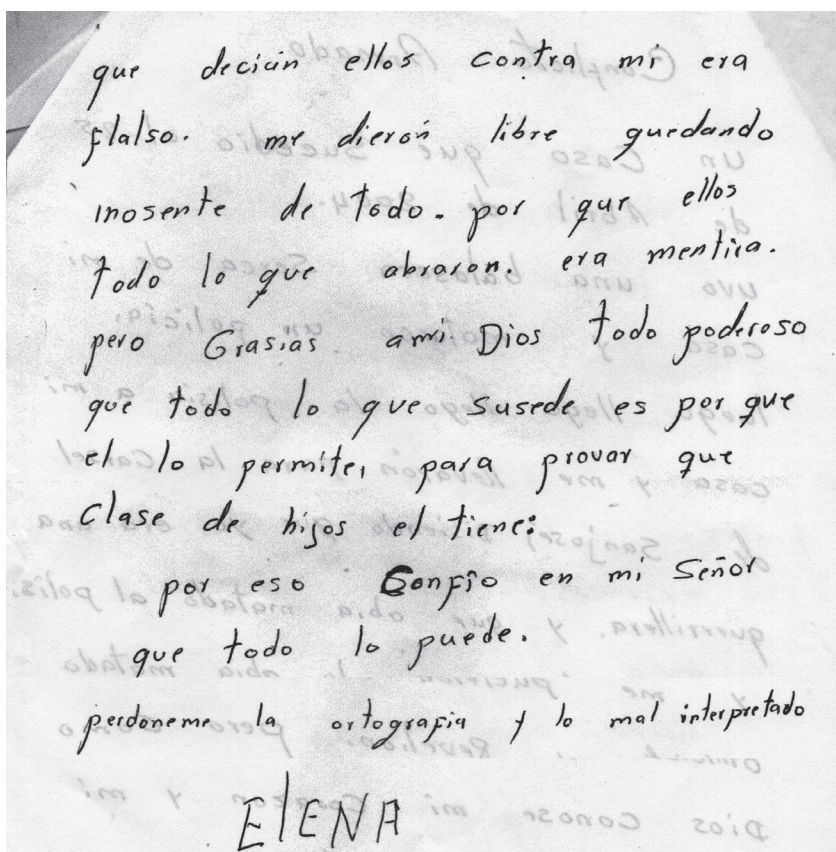 que decian ellos contra mi era
flalso. me dierón libre quedando
inosente de todo. por que ellos
todo lo que abraron. era mentira.
pero Grasias ami Dios todo poderoso
que todo lo que susede es por que
el lo permite, para provar que
Clase de hijos el tiene:
por eso Confío en mi Señor
que todo lo puede.
perdoneme la ortografia y lo mal interpretado
ElENA